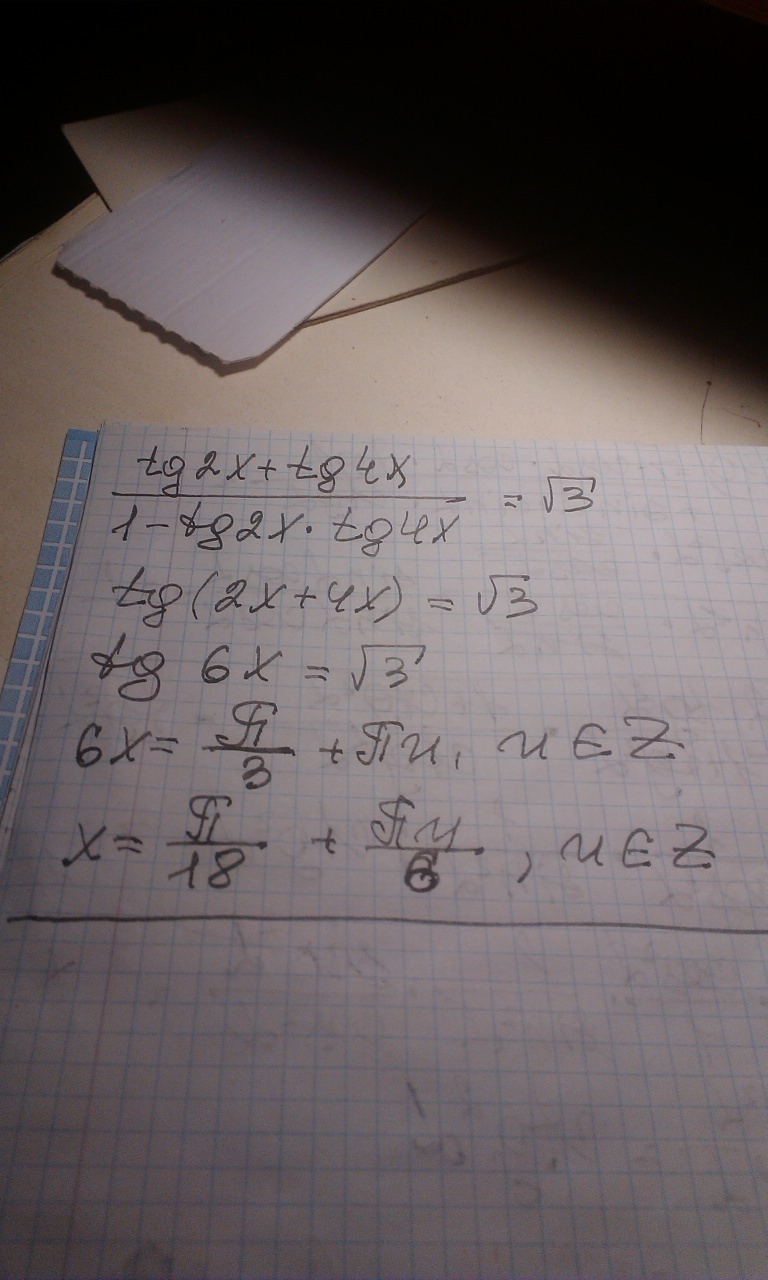 tg2x + tg4x
1 - tg2x · tg4x = √3
tg(2x + 4x) = √3
tg 6x = √3
6x = П/3 + Пn, n ∈ Z
x = П/18 + Пn/6, n ∈ Z